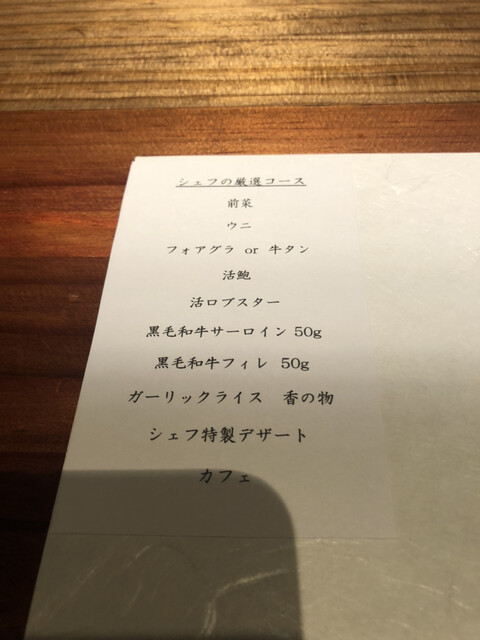 シェフの厳選コース
前菜
ウニ
フォアグラ or 牛タン
活鮑
活ロブスター
黒毛和牛サーロイン 50g
黒毛和牛フィレ 50g
ガーリックライス 香の物
シェフ特製デザート
カフェ